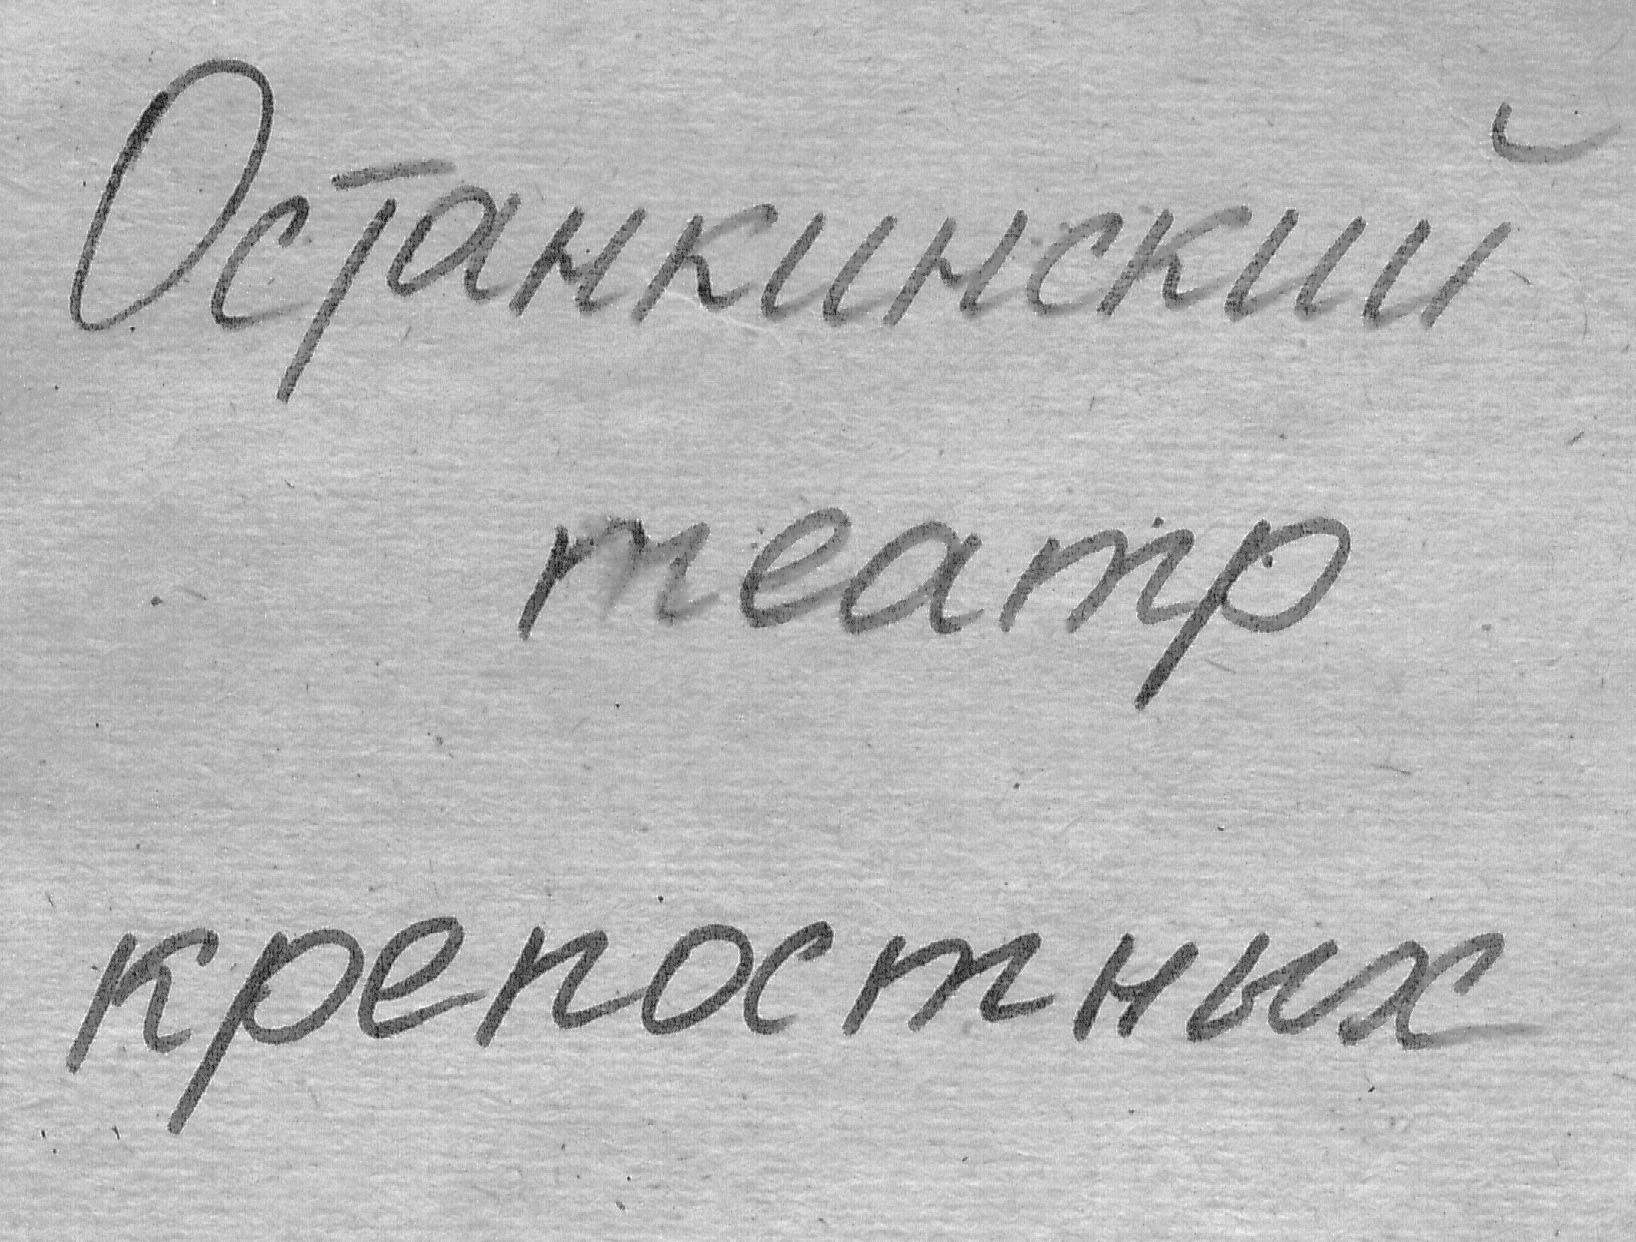 Останкинский
театр
крепостных